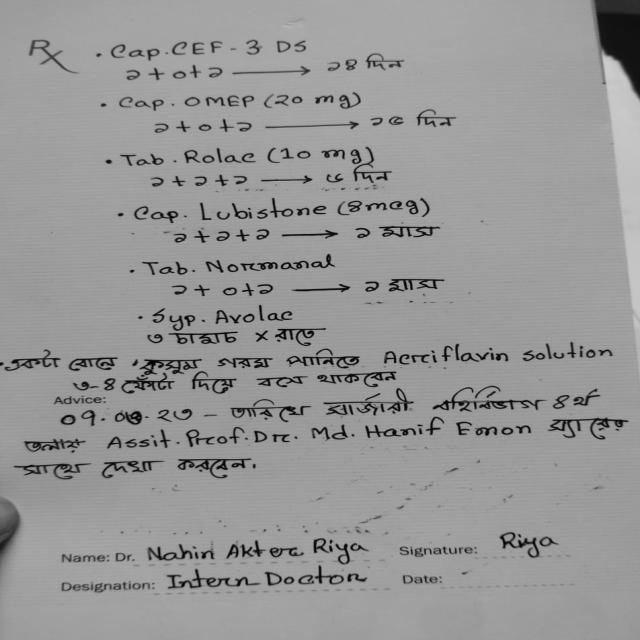 Rx
• Cap. CEF-3 DS
১+০+১ → ১৪ দিন
• Cap. OMEP (20 mg)
১+০+১ → ১৫ দিন
• Tab. Rolac (10 mg)
১+১+১ → ৫ দিন
• Cap. Lubistone (8mcg)
১+১+১ → ১ মাস
• Tab. Normanal
১+০+১ → ১ মাস
• Syp. Avolac
৩ চামচ × রাতে
• একটা বোলে কুসুম গরম পানিতে Acriflavin solution
৩-৪ ফোঁটা দিয়ে বসে থাকবেন
Advice:
তারিখে সার্জারী বহির্বিভাগ ৪র্থ
তলায় Assit. Prof. Dr. Md. Hanif Emon স্যারের
সাথে দেখা করবেন.
Name: Dr. Nahin Akter Riya Signature: Riya
Designation: Intern Doctor Date: